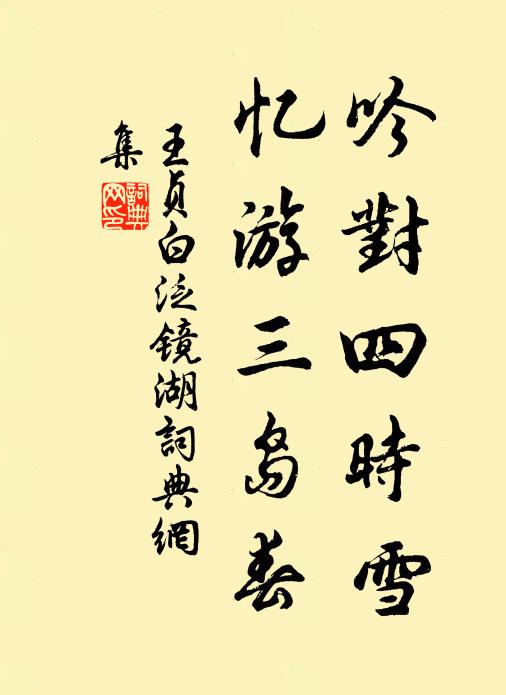 吟對四時雪
忆游三岛春
王贞白泛镜湖詞典網
集
詞典
网印